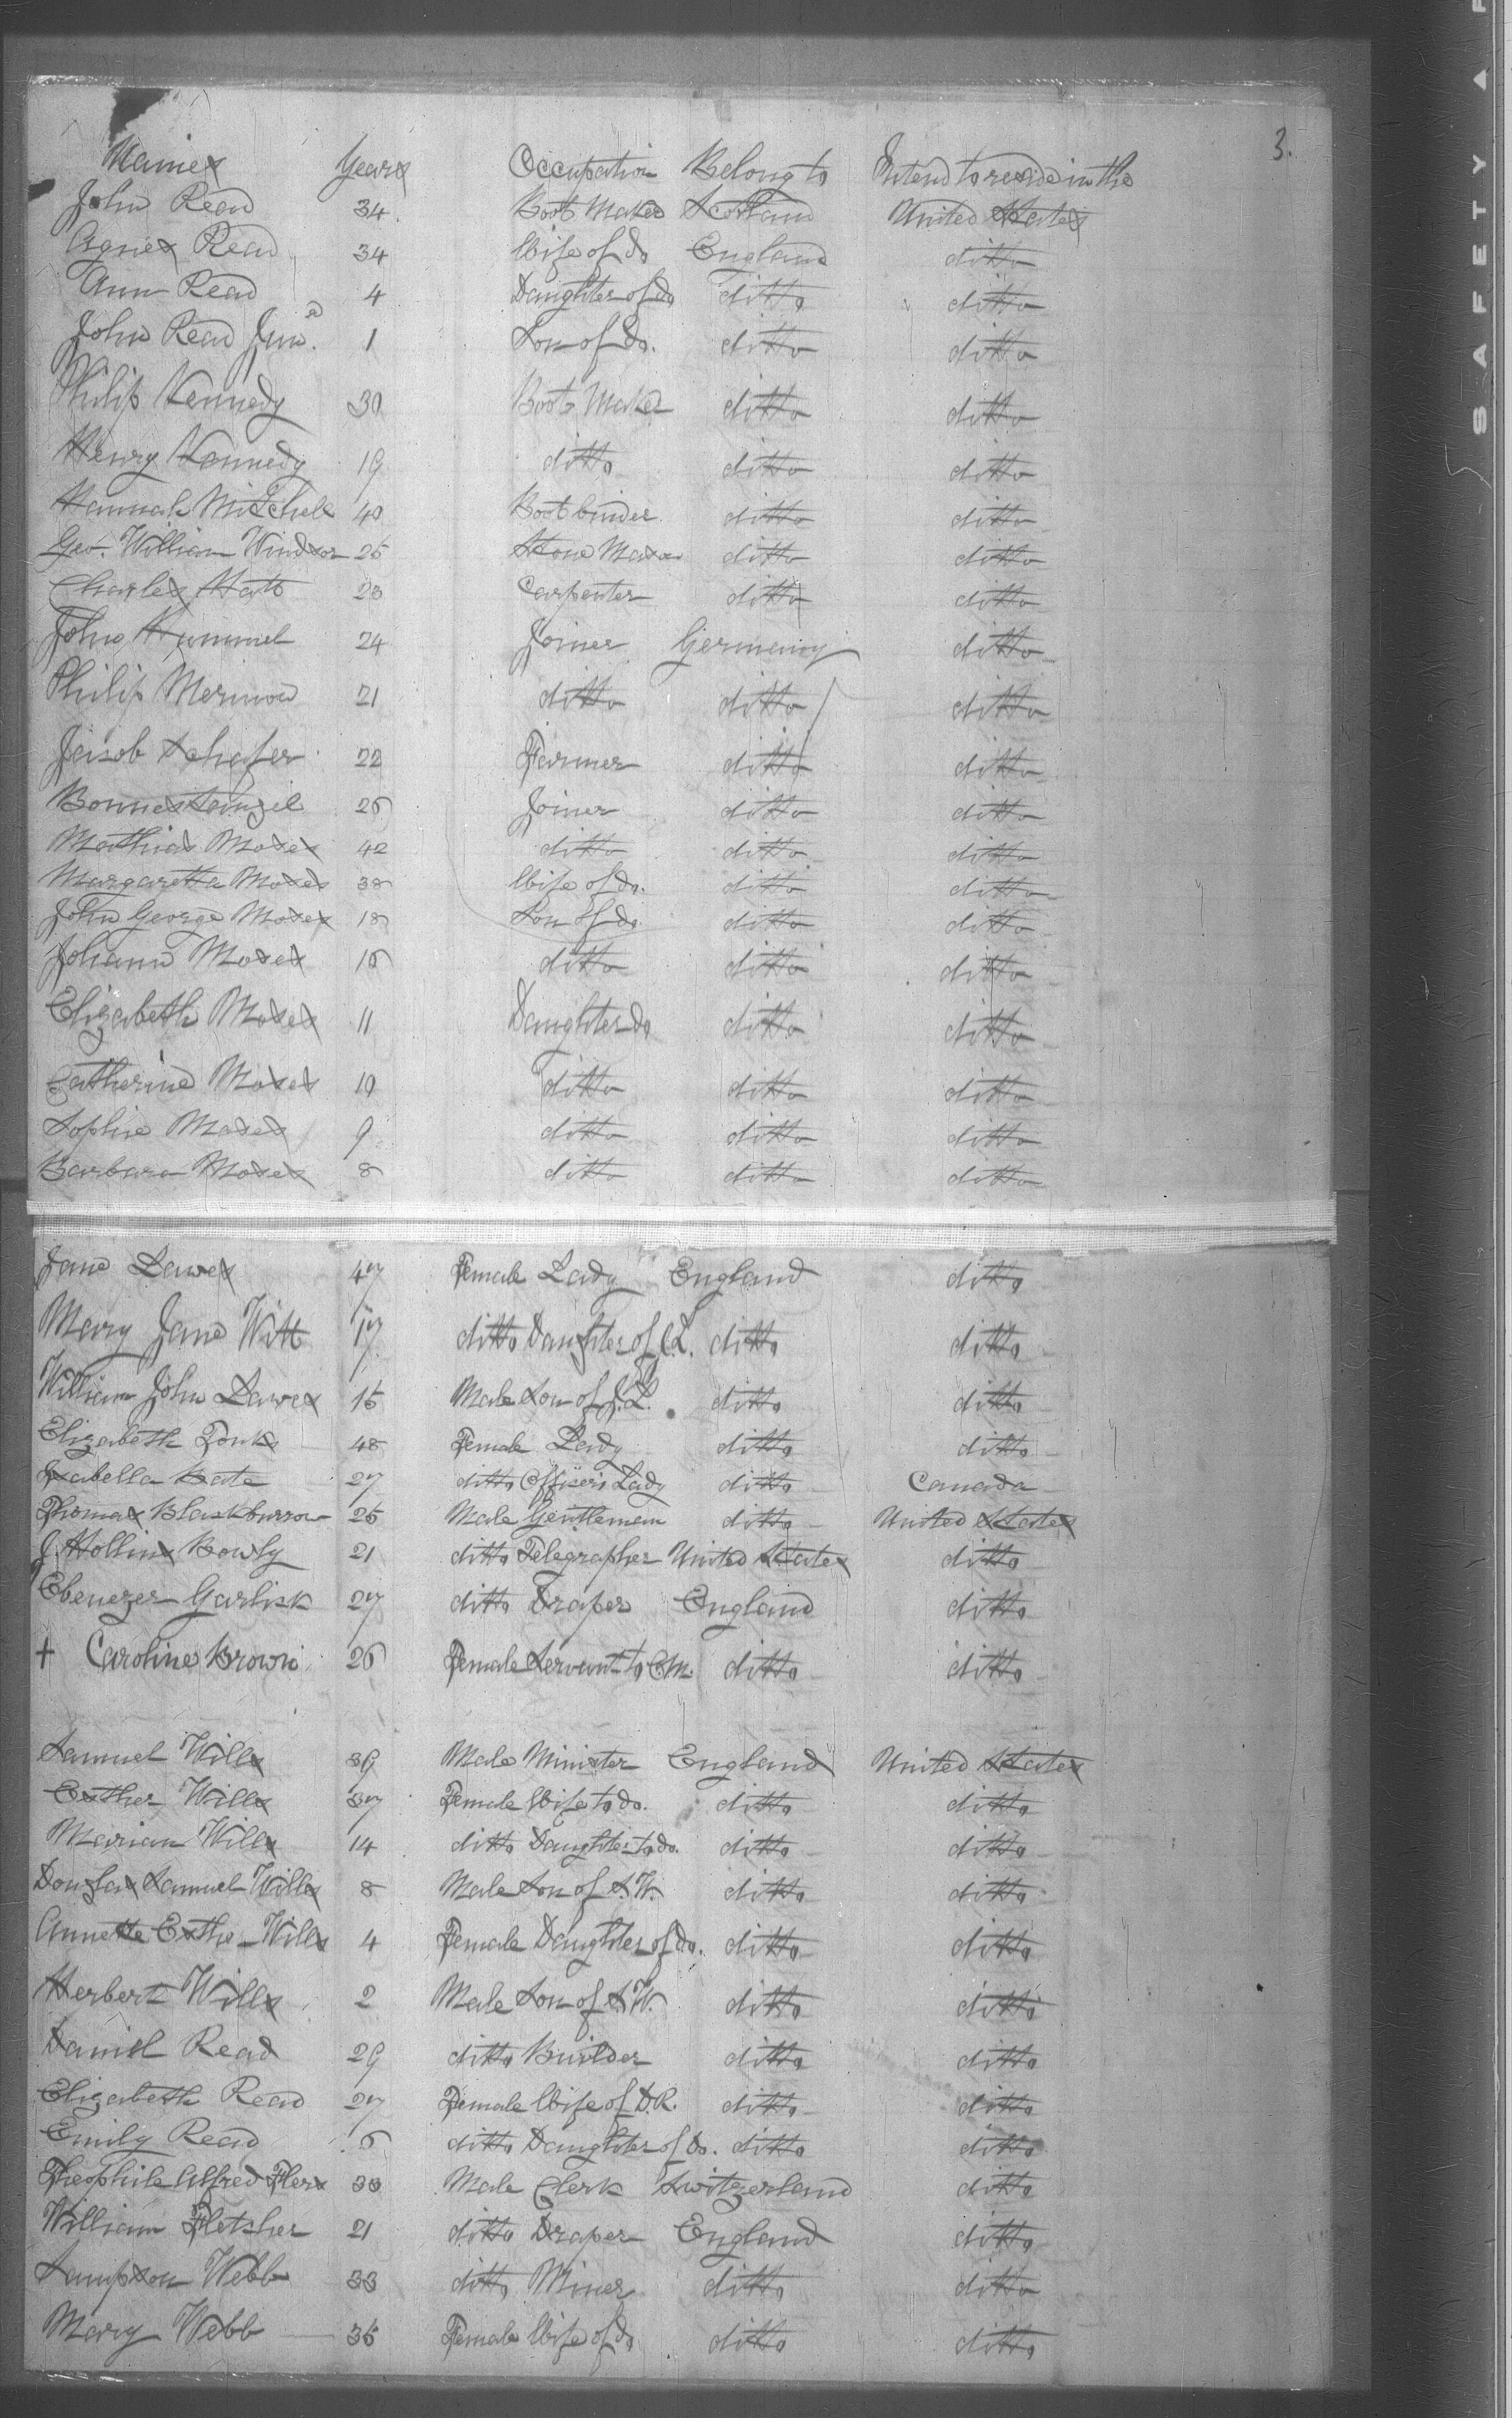 3.
Names Years Occupation Belong to Intend to reside in the
John Read 34. Boot Maker Scotland United States
Agnes Read 34 Wife of do England ditto
Ann Read 4 Daughter of do ditto ditto
John Read Junr. 1 Son of do. ditto ditto
Philip Kennedy 30 Boot Maker ditto ditto
Henry Kennedy 19 ditto ditto ditto
Hannah Mitchell 40 Boot binder ditto ditto
Geo. William Windsor 25 Stone Mason ditto ditto
Charles 23 Carpenter ditto ditto
John Hummel 24 Joiner Germany ditto
Philip 21 ditto ditto ditto
Jacob Schafer 22 Farmer ditto ditto
26 Joiner ditto ditto
Mathias Moses 42 ditto ditto ditto
Margaretta Moses 38 Wife of do. ditto ditto
John George Moses 18 Son of do. ditto ditto
Johann Moses 16 ditto ditto ditto
Elizabeth Moses 11 Daughter do ditto ditto
Catherine Moses 10 ditto ditto ditto
Sophie Moses 9 ditto ditto ditto
Barbara Moses 8 ditto ditto ditto
Jane Lawes 47 Female Lady England ditto
Mary Jane Witt 17 ditto Daughter of J.L. ditto ditto
William John Lawes 15 Male Son of J.L. ditto ditto
Elizabeth Tonks 48 Female Lady ditto ditto
Isabella Bate 27 ditto Officer's Lady ditto Canada
Thomas Blackburrow 25 Male Gentleman ditto United States
J. Hollins Bowly 21 ditto Telegrapher United States ditto
Ebenezer Garlick 27 ditto Draper England ditto
+ Caroline Brown 26 Female Servant to ditto ditto
Samuel Wills 39 Male Minister England United States
Esther Wills 37 Female Wife to do. ditto ditto
Marian Wills 14 ditto Daughter to do. ditto ditto
Douglas Samuel Wills 8 Male Son of S.W. ditto ditto
Annette Esther Wills 4 Female Daughter of do. ditto ditto
Herbert Wills 2 Male Son of S.W. ditto ditto
Daniel Read 29 ditto Builder ditto ditto
Elizabeth Read 27 Female Wife of D.R. ditto ditto
Emily Read 6 ditto Daughter of do. ditto ditto
Theophile Alfred 33 Male Clerk Switzerland ditto
William Fletcher 21 ditto Draper England ditto
Sampson Webb 33 ditto Miner ditto ditto
Mary Webb 35 Female Wife of do ditto ditto
SAFETY